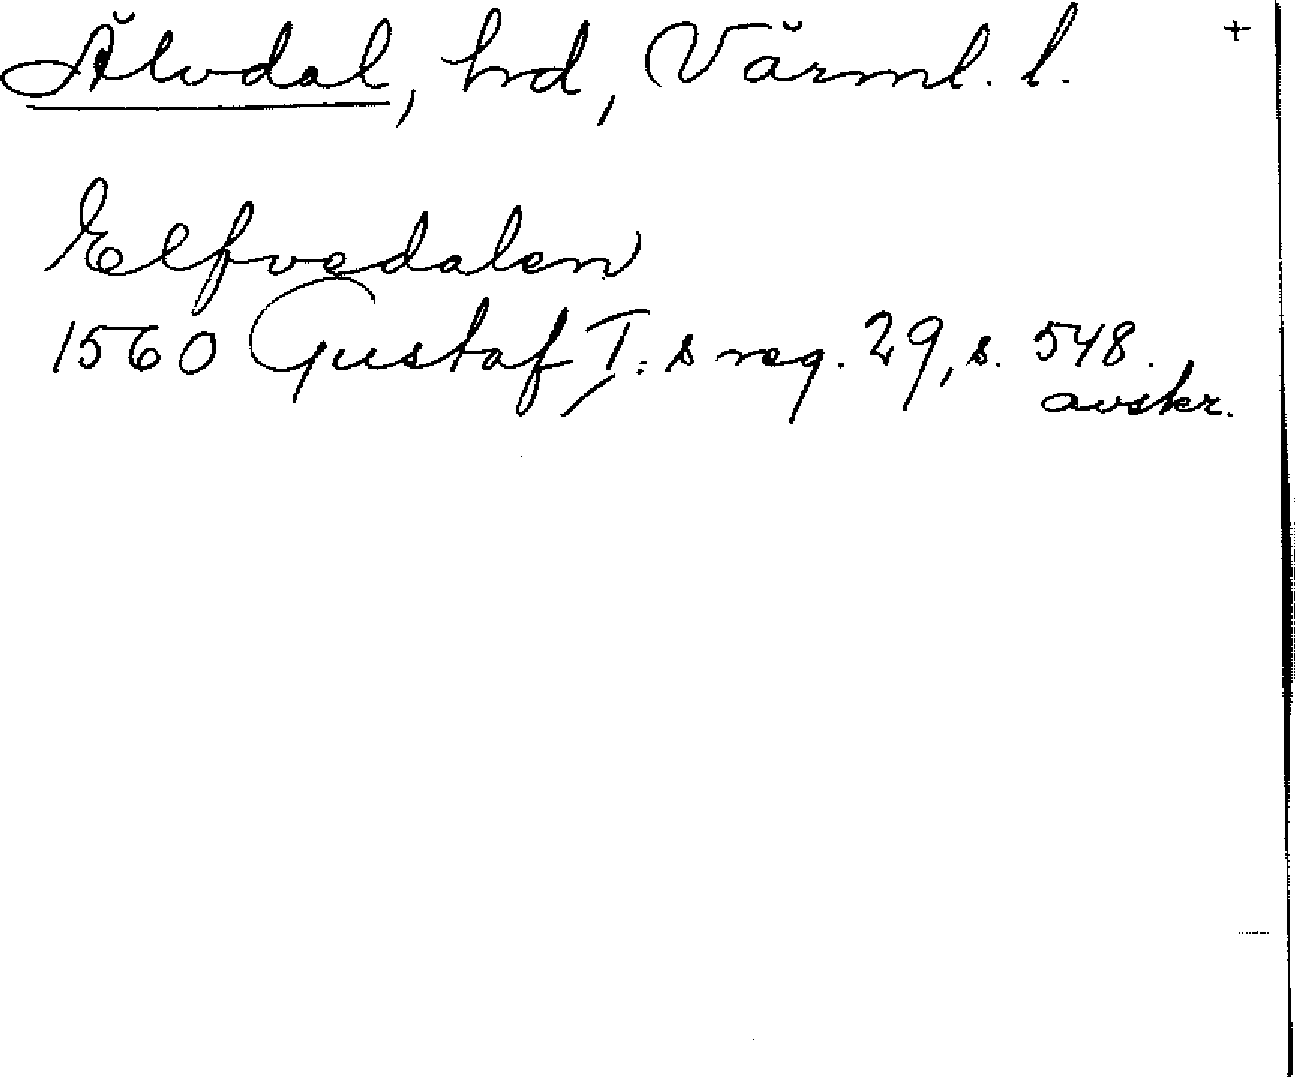 Älvdal, hd, Värml. l. +
Elfvedalen
1560 Gustaf I:s reg. 29, s. 548.
avskr.